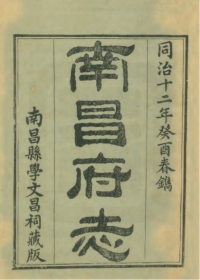 同治十二年癸酉春鐫
南昌府志
南昌縣學文昌祠藏版